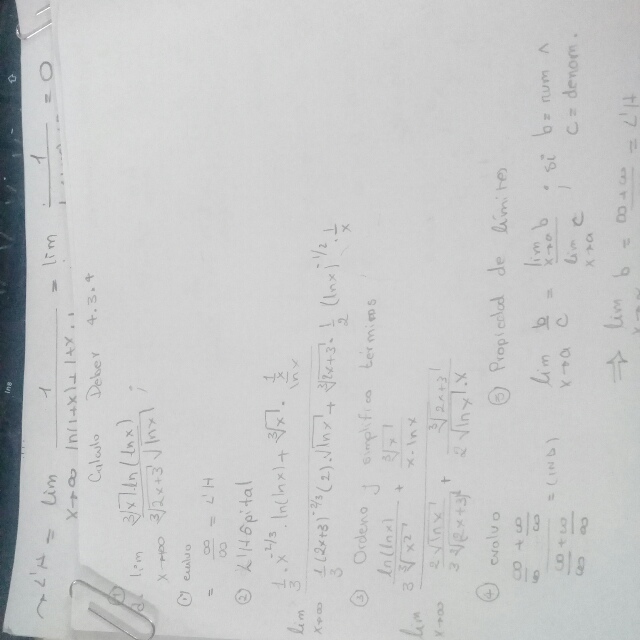 → LH = lim x→∞ 1 / ln(1+x)+1+x·1 = lim 1 = 0
Cálculo Deber 4.3.4
lim x→∞ ∛x ln(lnx) / ∛2x+3 √lnx ;
① evaluo
= ∞/∞ = LH
② L'Hôpital
lim x→∞ 1/3 x^-2/3 · ln(lnx) + ∛x · 1/x / lnx / 1/3 (2x+3)^-2/3 (2) · √lnx + ∛2x+3 · 1/2 (lnx)^-1/2 · 1/x
③ Ordeno y simplifico términos
lim x→∞ ln(lnx) / 3∛x² + ∛x / x·lnx / 2√lnx / 3∛(2x+3)² + ∛2x+3 / 2√lnx x
④ evaluo
∞/∞ + ∞/∞ / ∞/∞ + ∞/∞ = (IND)
⑤ Propiedad de límites
lim x→a b/c = lim x→a b / lim x→a c ; si b = num ∧ c = denom.
⇒ lim b = = LH